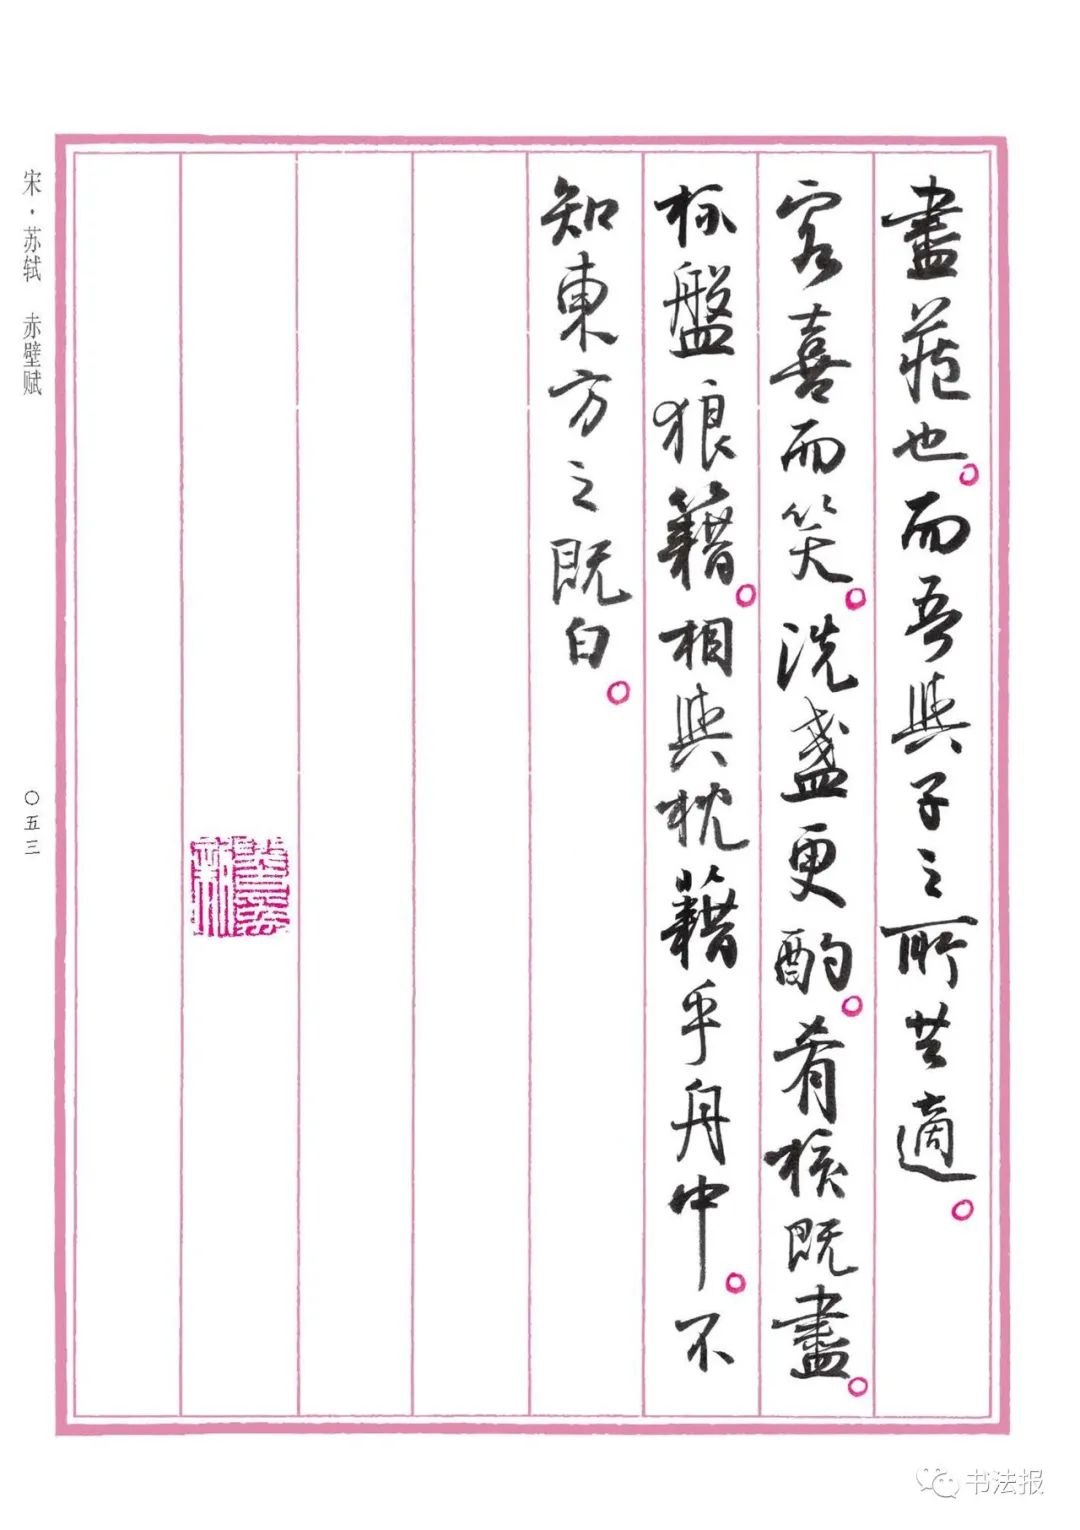 盡藏也。而吾與子之所共適。
客喜而笑。洗盞更酌。肴核既盡。
杯盤狼籍。相與枕籍乎舟中。不
知東方之既白。
宋·苏轼 赤壁赋
〇五三
书法报